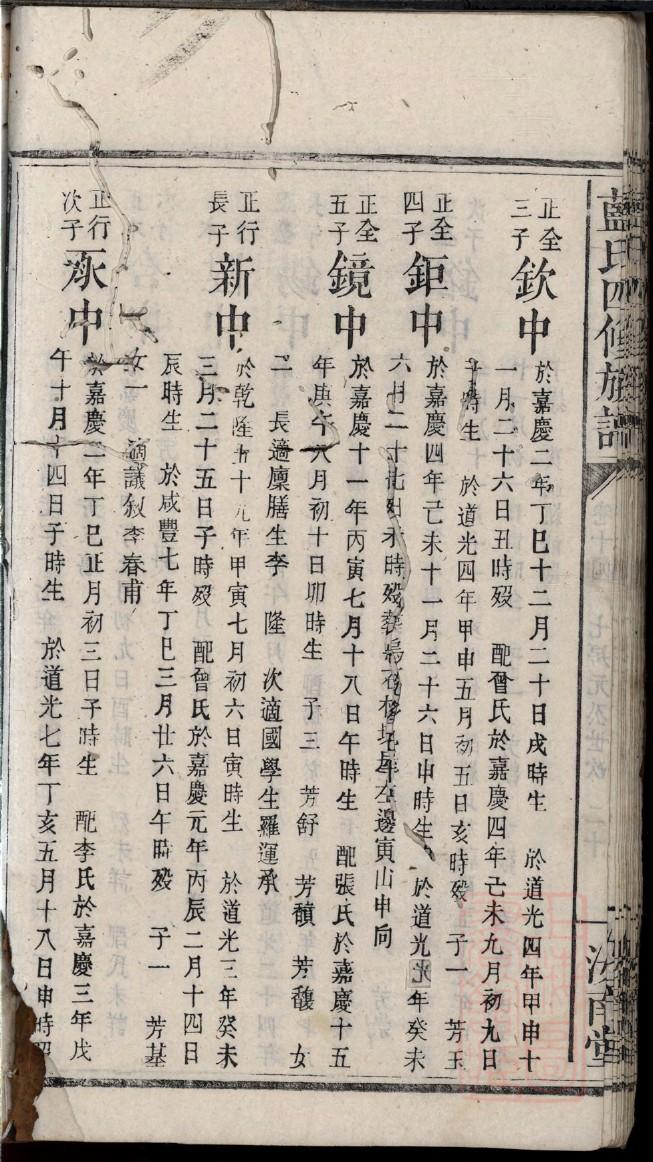 藍氏四修族譜
汝南堂
正全三子
欽中
於嘉慶二年丁巳十二月二十日戌時生 於道光四年甲申十
一月二十六日丑時歿 配曾氏於嘉慶四年己未九月初九日
時生 於道光四年甲申五月初五日亥時歿 子一 芳玉
正全四子
鉅中
於嘉慶四年己未十一月二十六日申時生 於道光 年癸未
六月二十 未時歿 左邊寅山申向
正全五子
鏡中
於嘉慶十一年丙寅七月十八日午時生 配張氏於嘉慶十五
年庚午八月初十日卯時生 子三 芳舒 芳馩 芳馥 女
二 長適廩膳生李 隆 次適國學生羅運承
正行長子
新中
於乾隆五十九年甲寅七月初六日寅時生 於道光三年癸未
三月二十五日子時歿 配曾氏於嘉慶元年丙辰二月十四日
辰時生 於咸豐七年丁巳三月廿六日午時歿 子一 芳基
女一 適議敘李春甫
正行次子
承中
於嘉慶二年丁巳正月初三日子時生 配李氏於嘉慶三年戊
午十月十四日子時生 於道光七年丁亥五月十八日申時歿